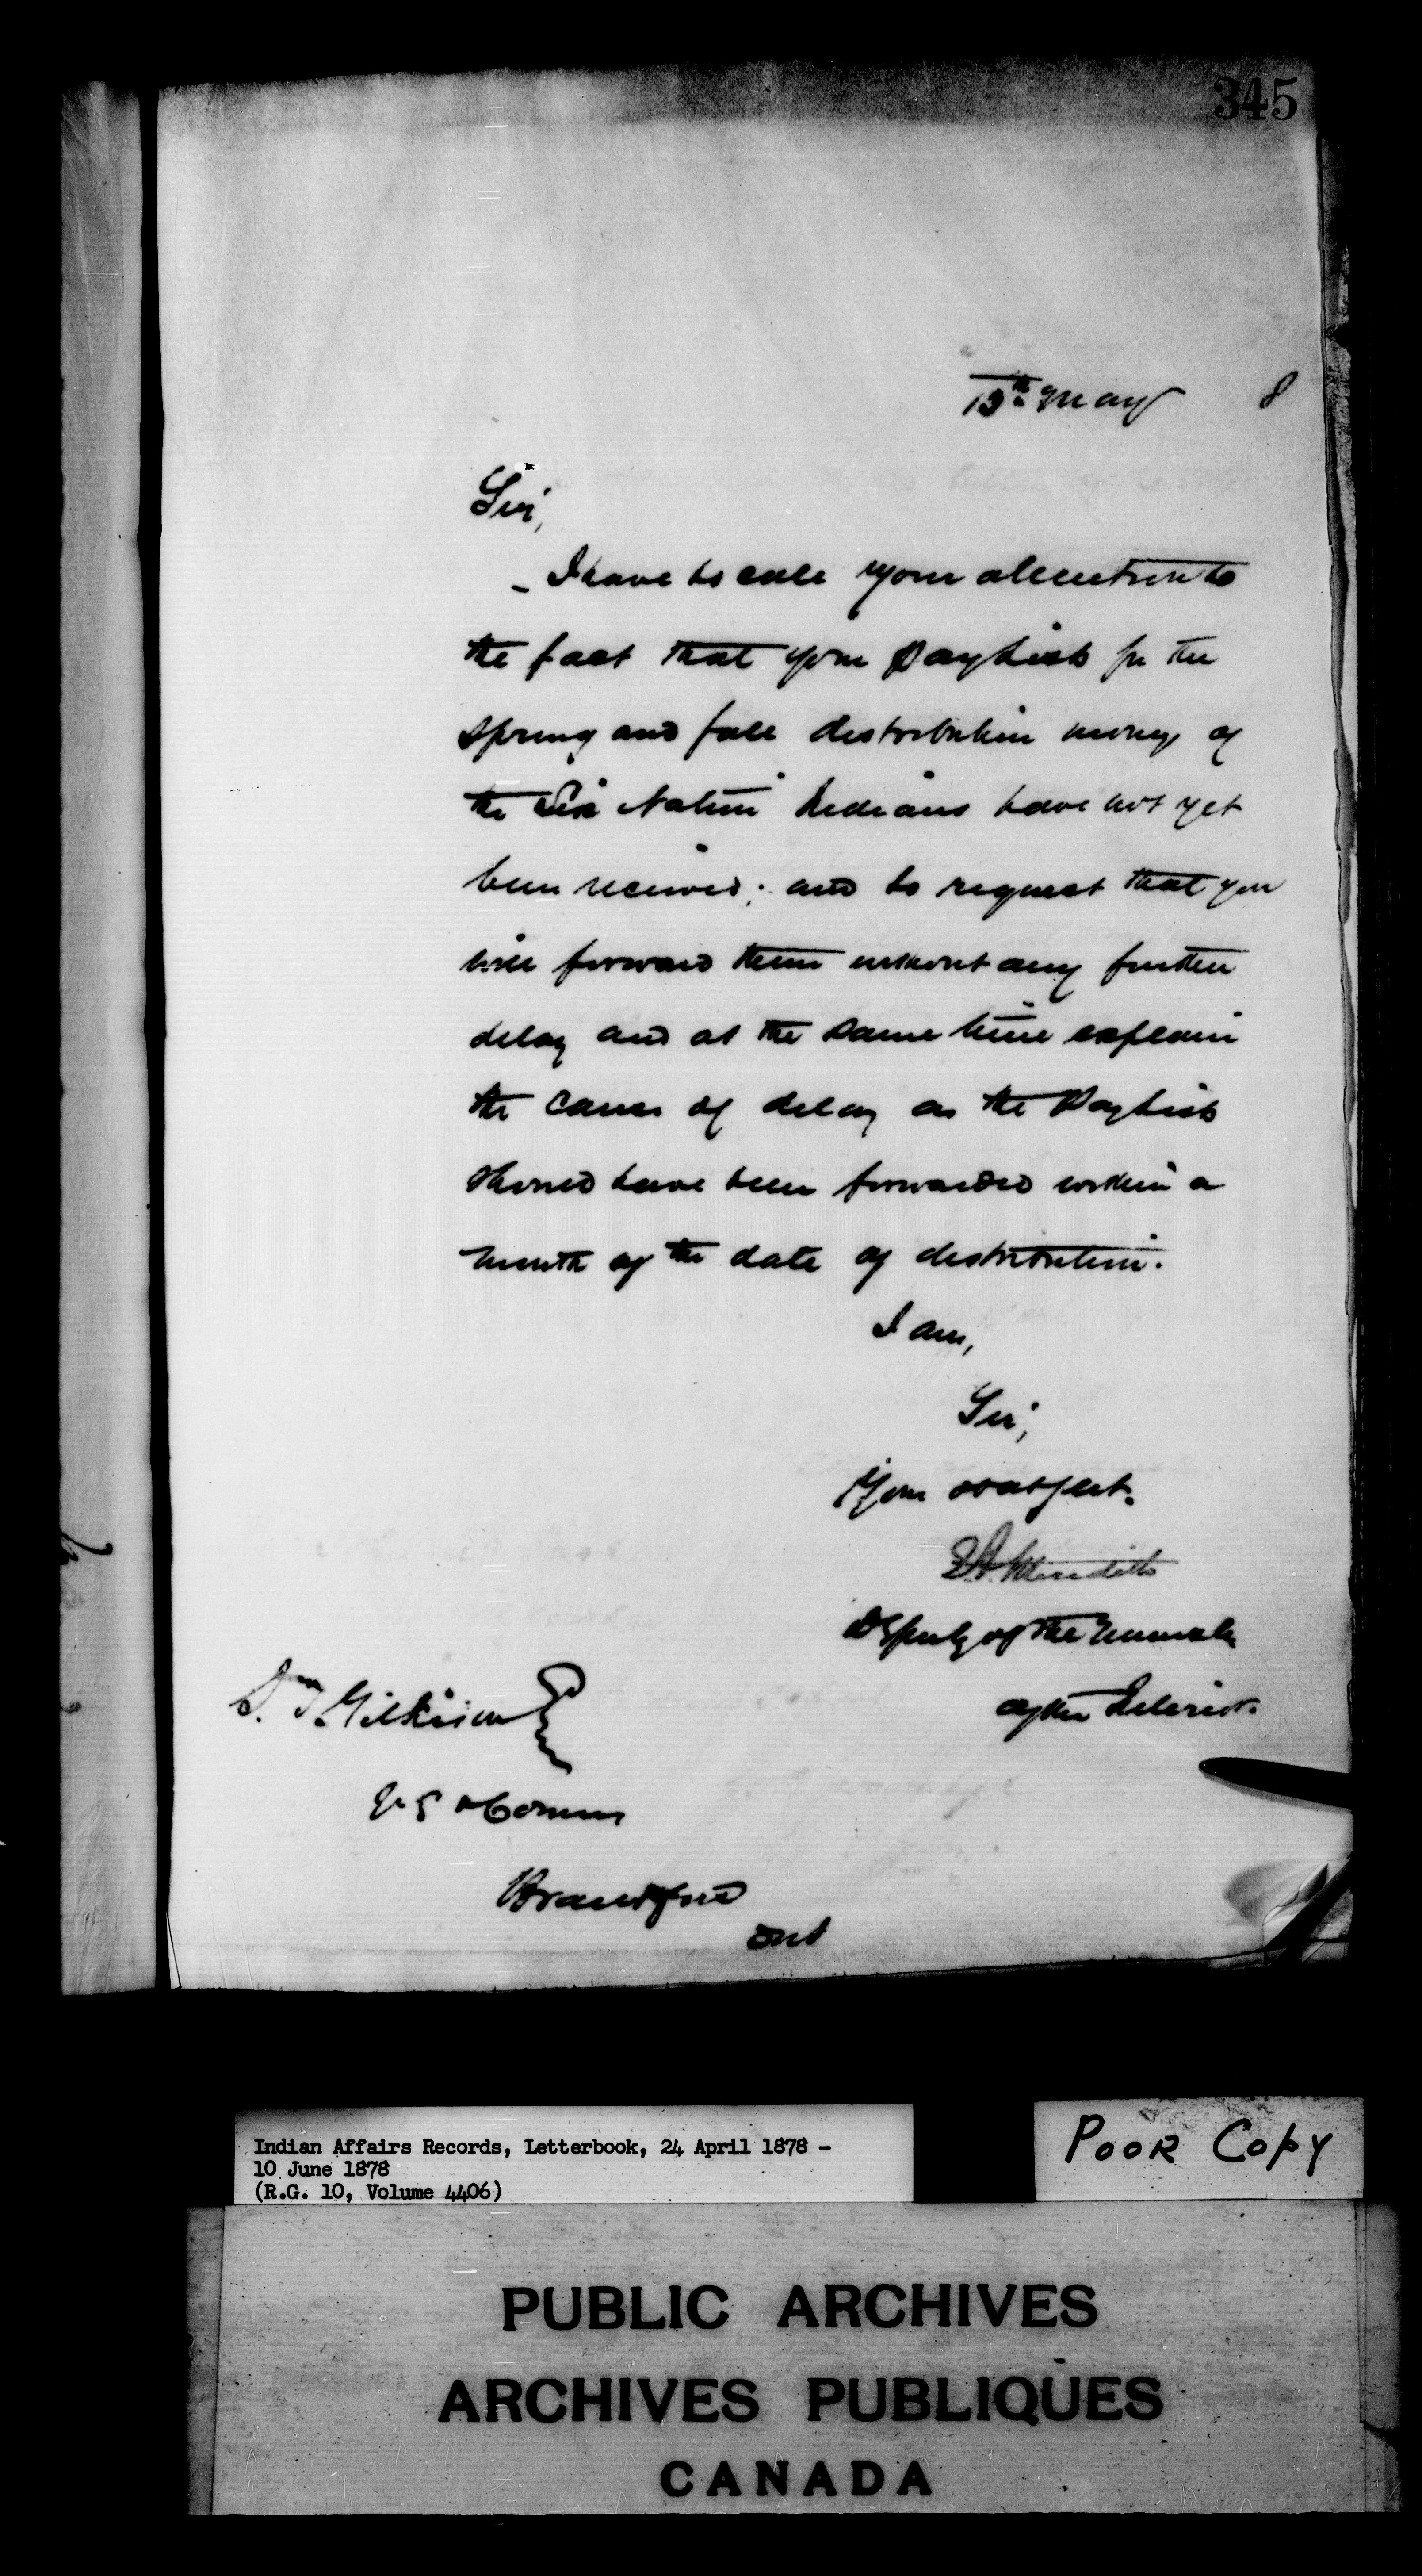 345
15th May 8
Sir,
I have to call your attention to
the fact that your Paylists for the
Spring and fall distribution money of
the Six Nation Indians have not yet
been received; and to request that you
will forward them without any further
delay and at the same time explain
the cause of delay as the Paylists
should have been forwarded within a
month of the date of distribution.
I am,
Sir,
Your obdt servt.
E A Meredith
Deputy of the Minister
of the Interior.
J. T. Gilkison Esq
V. S & Commr
Brantford
Ont
Indian Affairs Records, Letterbook, 24 April 1878 -
10 June 1878
(R.G. 10, Volume 4406)
POOR COPY
PUBLIC ARCHIVES
ARCHIVES PUBLIQUES
CANADA